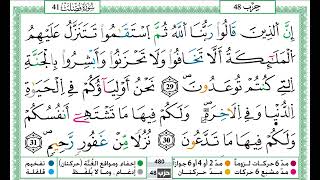 سورة فصلت 41
حزب 48
إِنَّ ٱلَّذِينَ قَالُوا۟ رَبُّنَا ٱللَّهُ ثُمَّ ٱسْتَقَٰمُوا۟ تَتَنَزَّلُ عَلَيْهِمُ
ٱلْمَلَٰٓئِكَةُ أَلَّا تَخَافُوا۟ وَلَا تَحْزَنُوا۟ وَأَبْشِرُوا۟ بِٱلْجَنَّةِ
ٱلَّتِى كُنتُمْ تُوعَدُونَ 29 نَحْنُ أَوْلِيَآؤُكُمْ فِى ٱلْحَيَوٰةِ
ٱلدُّنْيَا وَفِى ٱلْءَاخِرَةِ وَلَكُمْ فِيهَا مَا تَشْتَهِىٓ أَنفُسُكُمْ
وَلَكُمْ فِيهَا مَا تَدَّعُونَ 30 نُزُلًا مِّنْ غَفُورٍ رَّحِيمٍ 31
مدّ 6 حركات لزوماً مدّ 2 أو 4 أو 6 جوازاً
مدّ مشبع 6 حركات مدّ حركتان
480
حزب 48
إخفاء، ومواقع الغُنَّة (حركتان) تفخيم
إدغام، وما لا يُلفَظ قلقلة